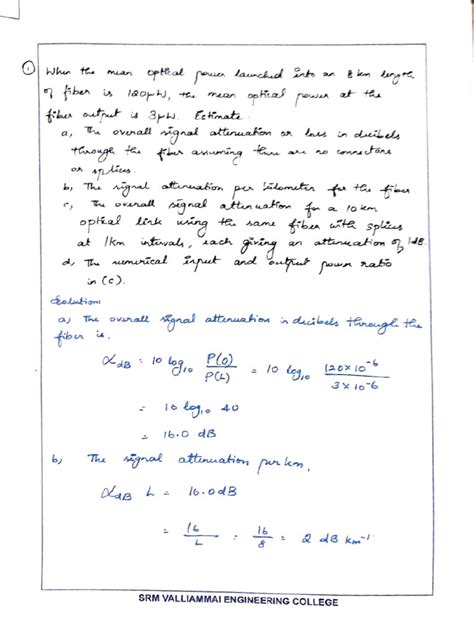 ① When the mean optical power launched into an 8 km length
of fiber is 120μW, the mean optical power at the
fiber output is 3μW. Estimate
a, The overall signal attenuation or loss in decibels
through the fiber assuming there are no connectors
or splices.
b, The signal attenuation per kilometer for the fiber
c, The overall signal attenuation for a 10 km
optical link using the same fiber with splices
at 1km intervals, each giving an attenuation of 1dB
d, The numerical input and output power ratio
in (c).
Solution:
a) The overall signal attenuation in decibels through the
fiber is,
α_dB = 10 log₁₀ P(0)/P(L) = 10 log₁₀ 120×10⁻⁶/3×10⁻⁶
= 10 log₁₀ 40
= 16.0 dB
b, The signal attenuation per km,
α_dB L = 16.0dB
= 16/L = 16/8 = 2 dB km⁻¹
SRM VALLIAMMAI ENGINEERING COLLEGE